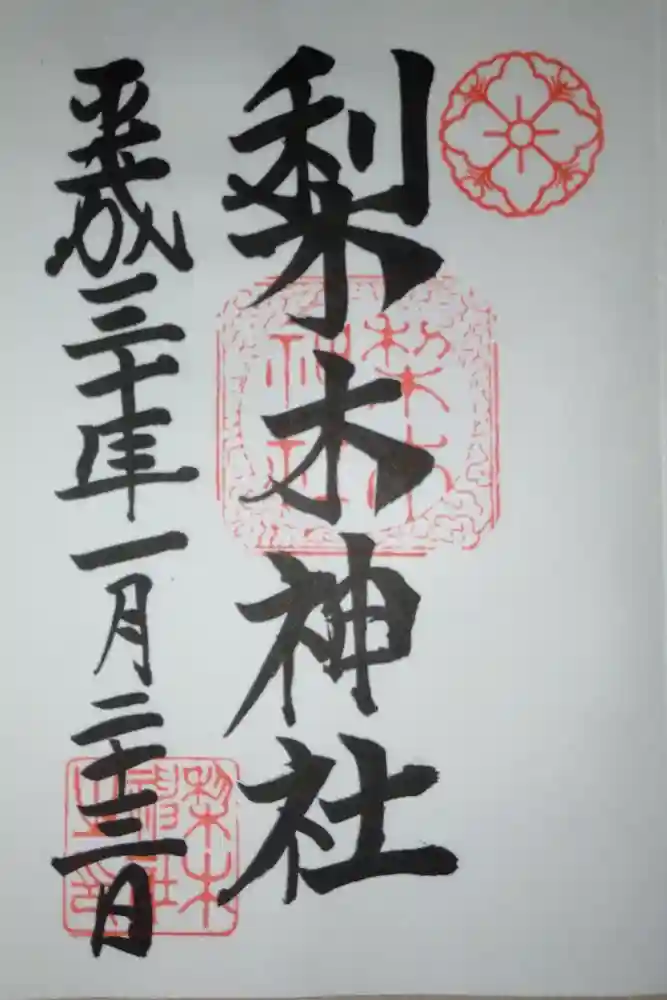 梨木神社
平成三十年一月二十三日
梨木神社
梨木神社之印